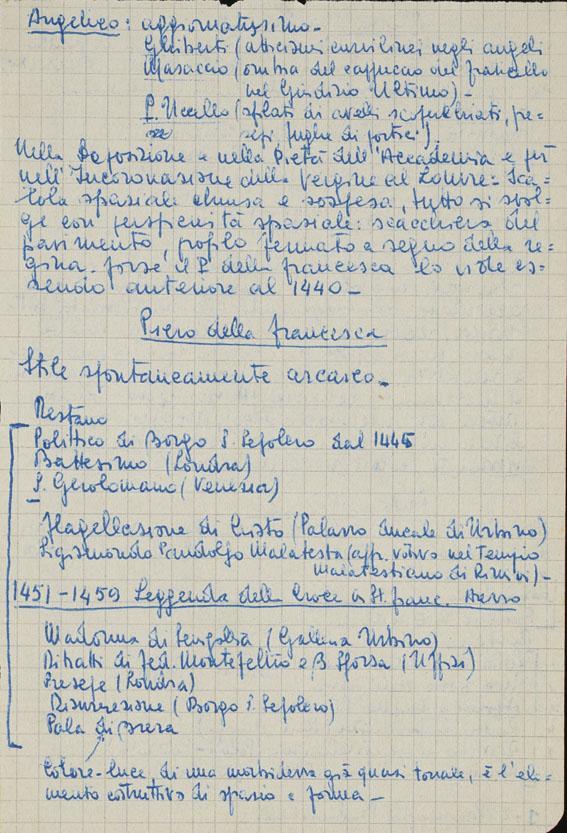 Angelico: aggiornatissimo -
Ghiberti (attorcimi curvilinei negli angeli
Masaccio (ombra del cappuccio del fraticello
nel Giudizio Ultimo) -
P. Uccello (sfilati di avelli scoperchiati, pre=
sepi, fughe di portici)
Nella Deposizione e nella Pietà dell'Accademia e più
nell'Incoronazione della Vergine al Louvre: Sca=
tola spaziale chiusa e sospesa, tutto si svol=
ge con perspicuità spaziale: scacchiera del
pavimento, profilo fermato a segno della re=
gina. forse il P. della francesca lo vide es=
sendo anteriore al 1440 -
Piero della francesca
Stile spontaneamente arcaico -
Restano
Polittico di Borgo S. Sepolcro dal 1445
Battesimo (Londra)
S. Gerolomano (Venezia)
Flagellazione di Cristo (Palazzo ducale di Urbino)
Sigismondo Pandolfo Malatesta (affr. votivo nel Tempio
Malatestiano di Rimini) -
1451 - 1459 Leggenda della Croce in St. franc. Arezzo
Madonna di Senigallia (Galleria Urbino)
Ritratti di fed. Montefeltro e B Sforza (Uffizi)
Presepe (Londra)
Risurrezione (Borgo S. Sepolcro)
Pala di Brera
Colore-luce, di una morbidezza già quasi tonale, è l'ele=
mento costruttivo di spazio e forma -